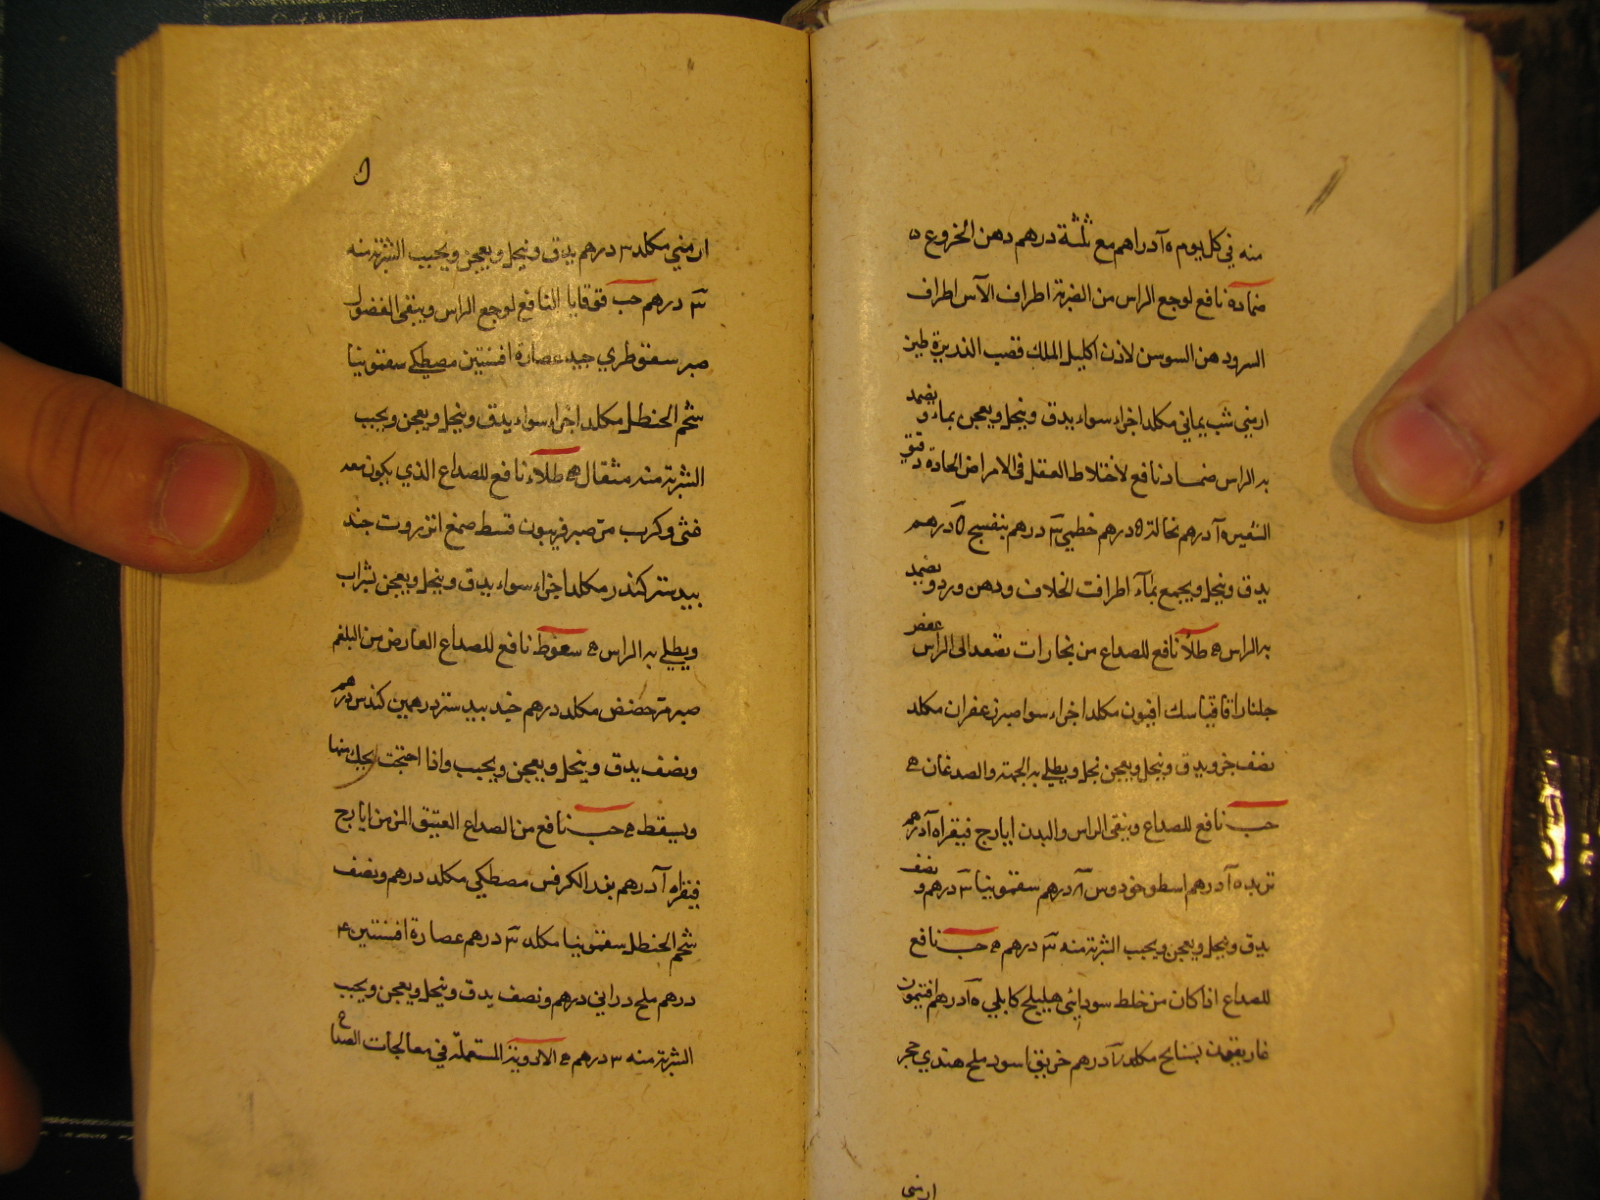 منه في كل يوم ٥ آ دراهم مع ثلثة درهم دهن الخروع ٥
ضماده نافع لوجع الراس من الضربة اطراف الآس اطراف
السرو دهن السوسن لاذن اكليل الملك قصب الذريرة طين
ارمني شب يماني مكلد اجزاء سواء يدق وينخل ويعجن بماء ويضمد
به الراس ضماد نافع لاختلاط العقل في الامراض الحادة دقيق
الشعير ٥ آ درهم نخالة ٥ درهم خطمي ٣ درهم بنفسج ٥ درهم
يدق وينخل ويجمع بمآء اطراف الخلاف ودهن ورد ويضمد
به الراس ه طلاء نافع للصداع من بخارات تصعد الى الراس عفص
جلنار اقاقيا سك افيون مكلد اجزاء سوا صبر زعفران مكلد
نصف جزو يدق وينخل ويعجن بخل ويطلي به الجبهة والصدغان ه
حب نافع للصداع وينقي الراس والبدن ايارج فيقراه آ درهم
تربد ٥ آ درهم اسطوخودوس ٨ درهم سقمونيا ٣ درهم ونصف
يدق وينخل ويعجن ويحبب الشربة منه ٣ درهم ه حب نافع
للصداع اذا كان من خلط سودائي هليلج كابلي ٥ آ درهم افتيمون
غاريقون بسفايج مكلد آ درهم خربق اسود ملح هندي حجر
ارمني
ارمني مكلد ٣ درهم يدق وينخل ويعجن ويحبب الشربة منه
٣ درهم حب قوقايا النافع لوجع الراس وينقي الفضول
صبر سقوطري جيد عصارة افسنتين مصطكي سقمونيا
شحم الحنظل مكلد اجزاء سواء يدق وينخل ويعجن ويحبب
الشربة منه مثقال ه طلاء نافع للصداع الذي يكون معه
غثي وكرب مر صبر فربيون قسط صمغ انزروت جند
بيدستر كندر مكلد اجزاء سواء يدق وينخل ويعجن بشراب
ويطلي به الراس ه سعوط نافع للصداع العارض من البلغم
صبر مر حضض مكلد درهم جند بيدستر درهمين كندس درهم
ونصف يدق وينخل ويعجن ويحبب واذا احتجت يحك منها
ويسقط ه حب نافع من الصداع العتيق المزمن ايارج
فيقراه آ درهم بزر الكرفس مصطكي مكلد درهم ونصف
شحم الحنظل سقمونيا مكلد ٣ درهم عصارة افسنتين ٤
درهم ملح دراني درهم ونصف يدق وينخل ويعجن ويحبب
الشربة منه ٣ درهم ه الادوية المستعملة في معالجات الصداع